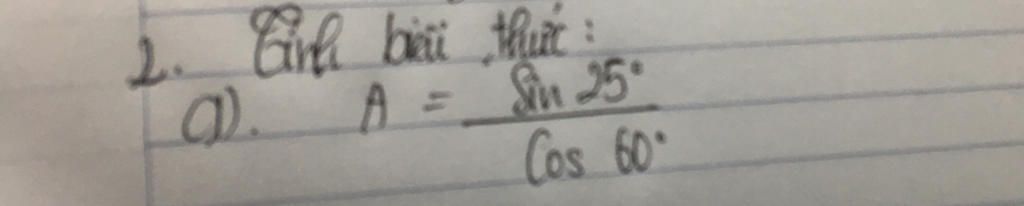 2. Tính biểu thức:
a). A = Sin 25° / Cos 60°